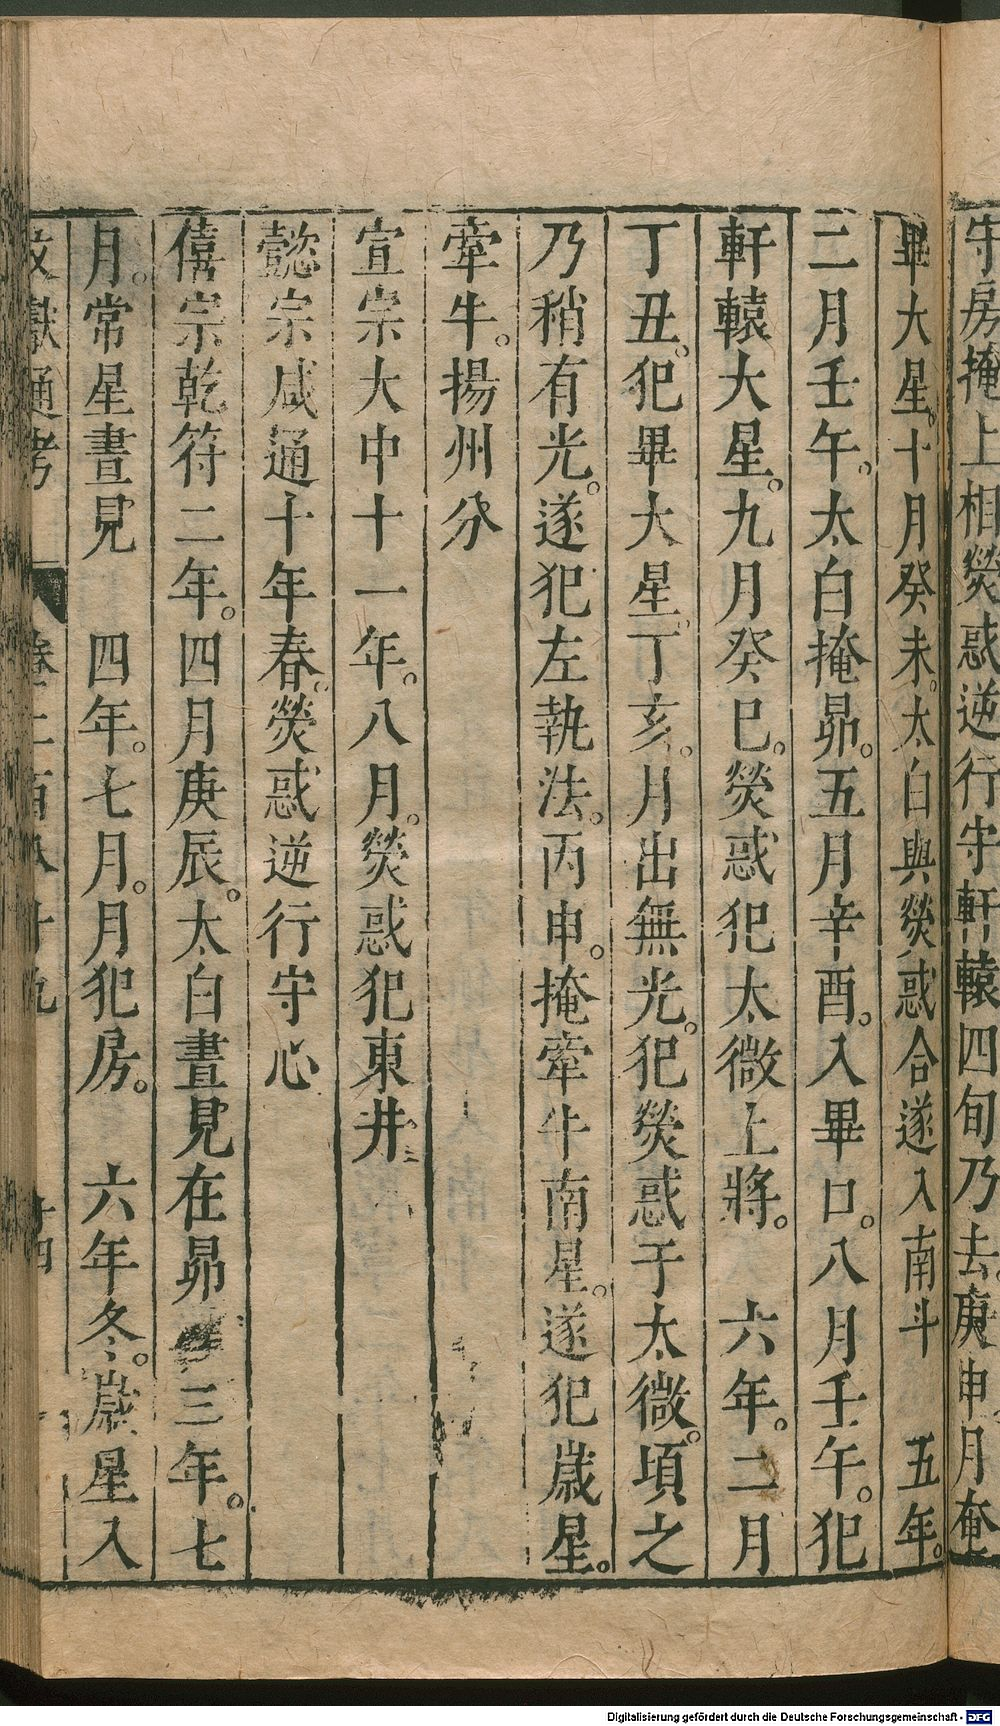 守房掩上相熒惑逆行守軒轅四旬乃去庚申月奄
畢大星。十月癸未。太白與熒惑合遂入南斗　五年。
二月壬午。太白掩昴。五月辛酉。入畢口。八月壬午。犯
軒轅大星。九月癸巳。熒惑犯太微上將。　六年。二月
丁丑。犯畢大星。丁亥。月出無光。犯熒惑于太微。頃之
乃稍有光。遂犯左執法。丙申。掩牽牛南星。遂犯歲星。
牽牛。揚州分
宣宗大中十一年。八月。熒惑犯東井
懿宗咸通十年春。熒惑逆行守心
僖宗乾符二年。四月庚辰。太白晝見在昴　三年。七
月。常星晝見　四年。七月。月犯房。　六年冬。歲星入
文獻通考　卷二百八十九　十四
Digitalisierung gefördert durch die Deutsche Forschungsgemeinschaft - DFG